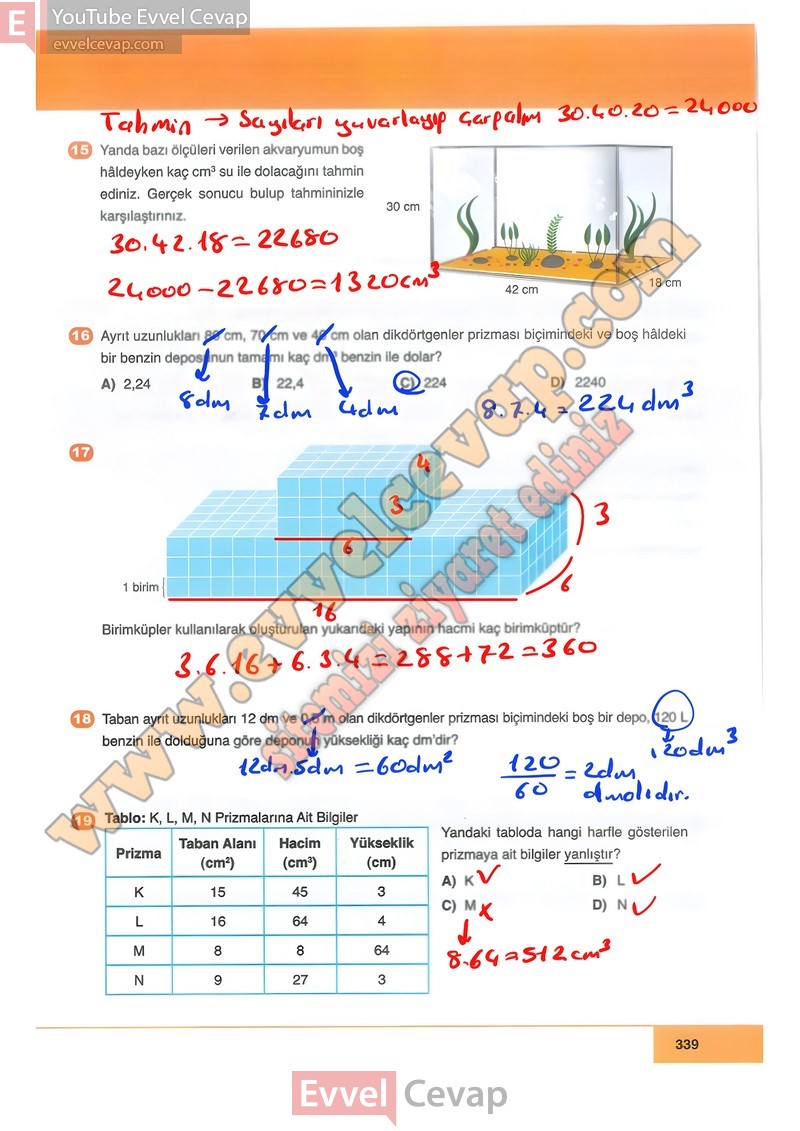 E YouTube Evvel Cevap
evvelcevap.com
Tahmin → Sayıları yuvarlayıp çarpalım 30.40.20=24000
15 Yanda bazı ölçüleri verilen akvaryumun boş
hâldeyken kaç cm³ su ile dolacağını tahmin
ediniz. Gerçek sonucu bulup tahmininizle
karşılaştırınız.
30 cm
42 cm
18 cm
30.42.18=22680
24000-22680=1320cm³
16 Ayrıt uzunlukları 80 cm, 70 cm ve 40 cm olan dikdörtgenler prizması biçimindeki ve boş hâldeki
bir benzin deposunun tamamı kaç dm³ benzin ile dolar?
A) 2,24 B) 22,4 C) 224 D) 2240
8dm 7dm 4dm 8.7.4=224dm³
17
4
3
6
3
6
16
1 birim
Birimküpler kullanılarak oluşturulan yukarıdaki yapının hacmi kaç birimküptür?
3.6.16+6.3.4=288+72=360
18 Taban ayrıt uzunlukları 12 dm ve 0,5 m olan dikdörtgenler prizması biçimindeki boş bir depo, 120 L
benzin ile dolduğuna göre deponun yüksekliği kaç dm'dir?
120dm³
12dm.5dm=60dm²
120
60
=2dm
dmolıdır.
19 Tablo: K, L, M, N Prizmalarına Ait Bilgiler
Prizma Taban Alanı (cm²) Hacim (cm³) Yükseklik (cm)
K 15 45 3
L 16 64 4
M 8 8 64
N 9 27 3
Yandaki tabloda hangi harfle gösterilen
prizmaya ait bilgiler yanlıştır?
A) K B) L
C) M D) N
8.64=512cm³
339
www.evvelcevap.com
sitemizi ziyaret ediniz
Evvel Cevap